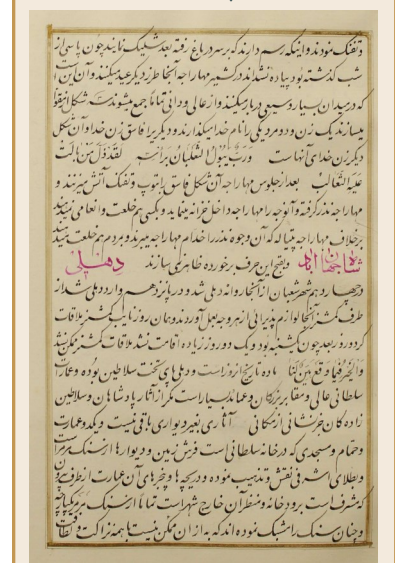 و تفنگ نمودند و اینکه رسم دارند که بر سر در باغ رفته بعد شلیک نمایند چون پاسی از
شب گذشته بود پیاده نشدند در کشمیر مهاراجه آنجا طرز دیگر عید میکنند و آن این است
که در میدان بسیار وسیعی دربار میکنند و از عالی و دانی تماماً جمع میشوند شکل از مقوا
میسازند یک زن و دو مرد یکی را نام خدا میگذارند و دیگریرا فاسق زن خدا و آن شکل
دیگر زن خدای آنهاست ورب یبول الثعلبان براسه لقد ذل من بالت
علیه الثعالب بعد از جلوس مهاراجه آن شکل فاسق را بتوپ و تفنگ آتش میزنند و
مهاراجه نذر گرفته و آنوجه را مهاراجه داخل خزانه مینماید و بکسی هم خلعت و انعامی نمیدهد
برخلاف مهاراجه پتیاله که آن وجوه نذر را خدام مهاراجه میبرند و بمردم هم خلعت میدهد
شاه جهان آباد و بقبح این حرف برخورده ظاهر می سازند دهلی
در چهاردهم شهر شعبان از آنجا روانه دهلی شد و در پانزدهم وارد دهلی شد از
طرف کمشنر آنجا لوازم پذیرائی از هر وجه بعمل آوردند و همان روز نایب کمشنر ملاقات
کرد و روز بعد چون یکشنبه بود و یک دو روز زیاده اقامت نشد ملاقات کمشنر ممکن نشد
والخیر فیما وقع تاریخ انروز است و دهلی پای تخت سلاطین بوده و عمارات
سلطانی عالی و مقابر بزرگان و عمائد بسیار است مگر از آثار پادشاهان و سلاطین
زاده کان جز نشانی از مکانی آثاری بغیر دیواری باقی نیست و یکدو عمارت
و حمام و مسجدی که در خانه سلطانی است فرش زمین و دیوارها از سنگ مرمر است
و بطلای اشرفی نقش و تذهیب نموده و دریچها و پنجرهای آن عمارت از طرف بیرون
که مشرف است برودخانه و منظر آن خارج شهر است تماماً از سنگ مرمر یکپارچه
و چنان سنگ را مشبک نموده اند که به از ان ممکن نیست با همه نزاکت و نظافت